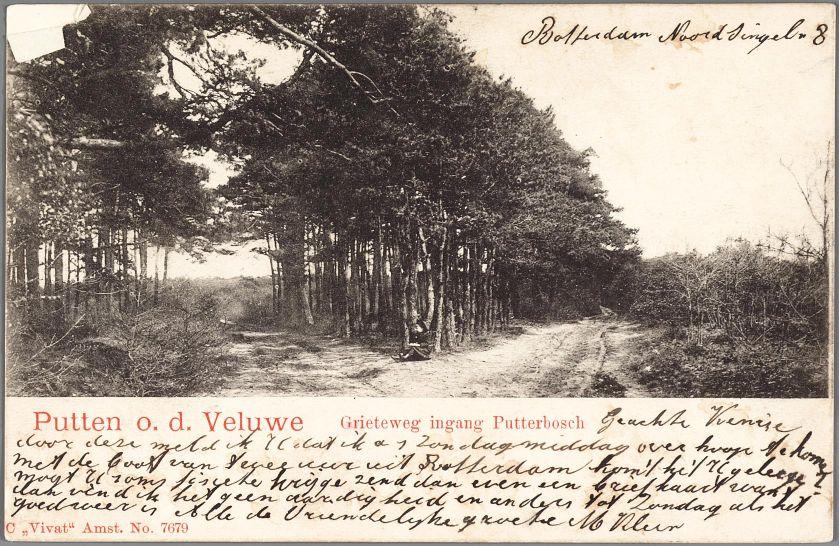 Rotterdam Noordsingel n 8
Putten o. d. Veluwe
Grieteweg ingang Putterbosch
Geachte
door deze meld ik U dat ik a s Zondag middag over hoop te komen
met de boot van twee uur uit Rotterdam komt het U gelegen
mogt U soms liever zend dan even een briefkaart want
dan vind ik het geen aardigheid en anders tot Zondag als het
goed weer is Alle de Vriendelijke groete M Klein
C „Vivat" Amst. No. 7679